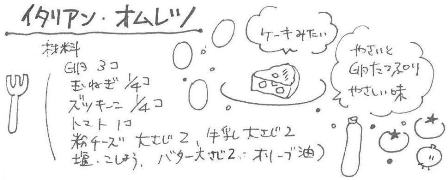 イタリアン・オムレツ
材料
卵 3コ
玉ねぎ 1/4コ
ズッキーニ 1/4コ
トマト 1コ
粉チーズ 大さじ2、牛乳大さじ2
塩・こしょう、バター大さじ2、オリーブ油)
ケーキみたい
やさいと
卵たっぷり
やさしい味